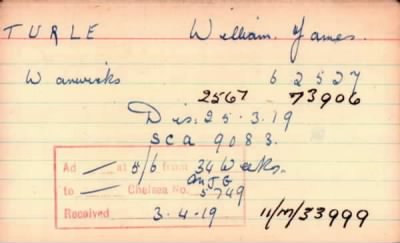 TURLE William James.
Warwicks 52527
2567 73906
Dis: 25.3.19
SCA 9083.
Ad — at 5/6 from 34 Weeks.
to — Chelsea No. 5749
Received 3.4.19 11/M/33999